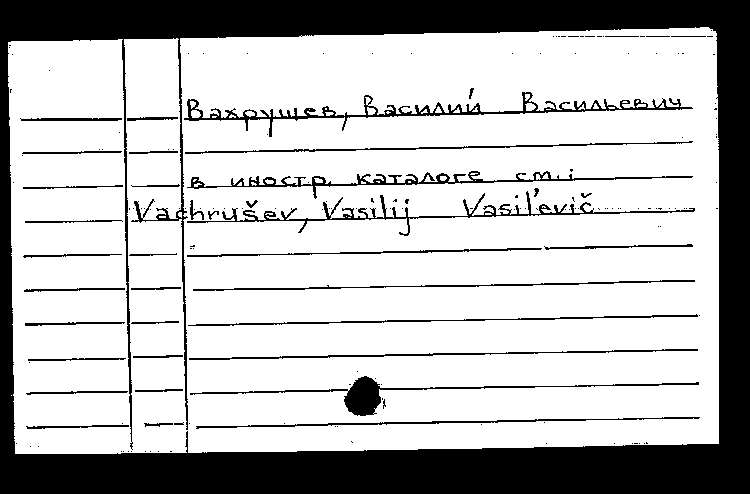 Вахрушев, Василий Васильевич
в иностр. каталоге см.:
Vachrušev, Vasilij Vasil'evič